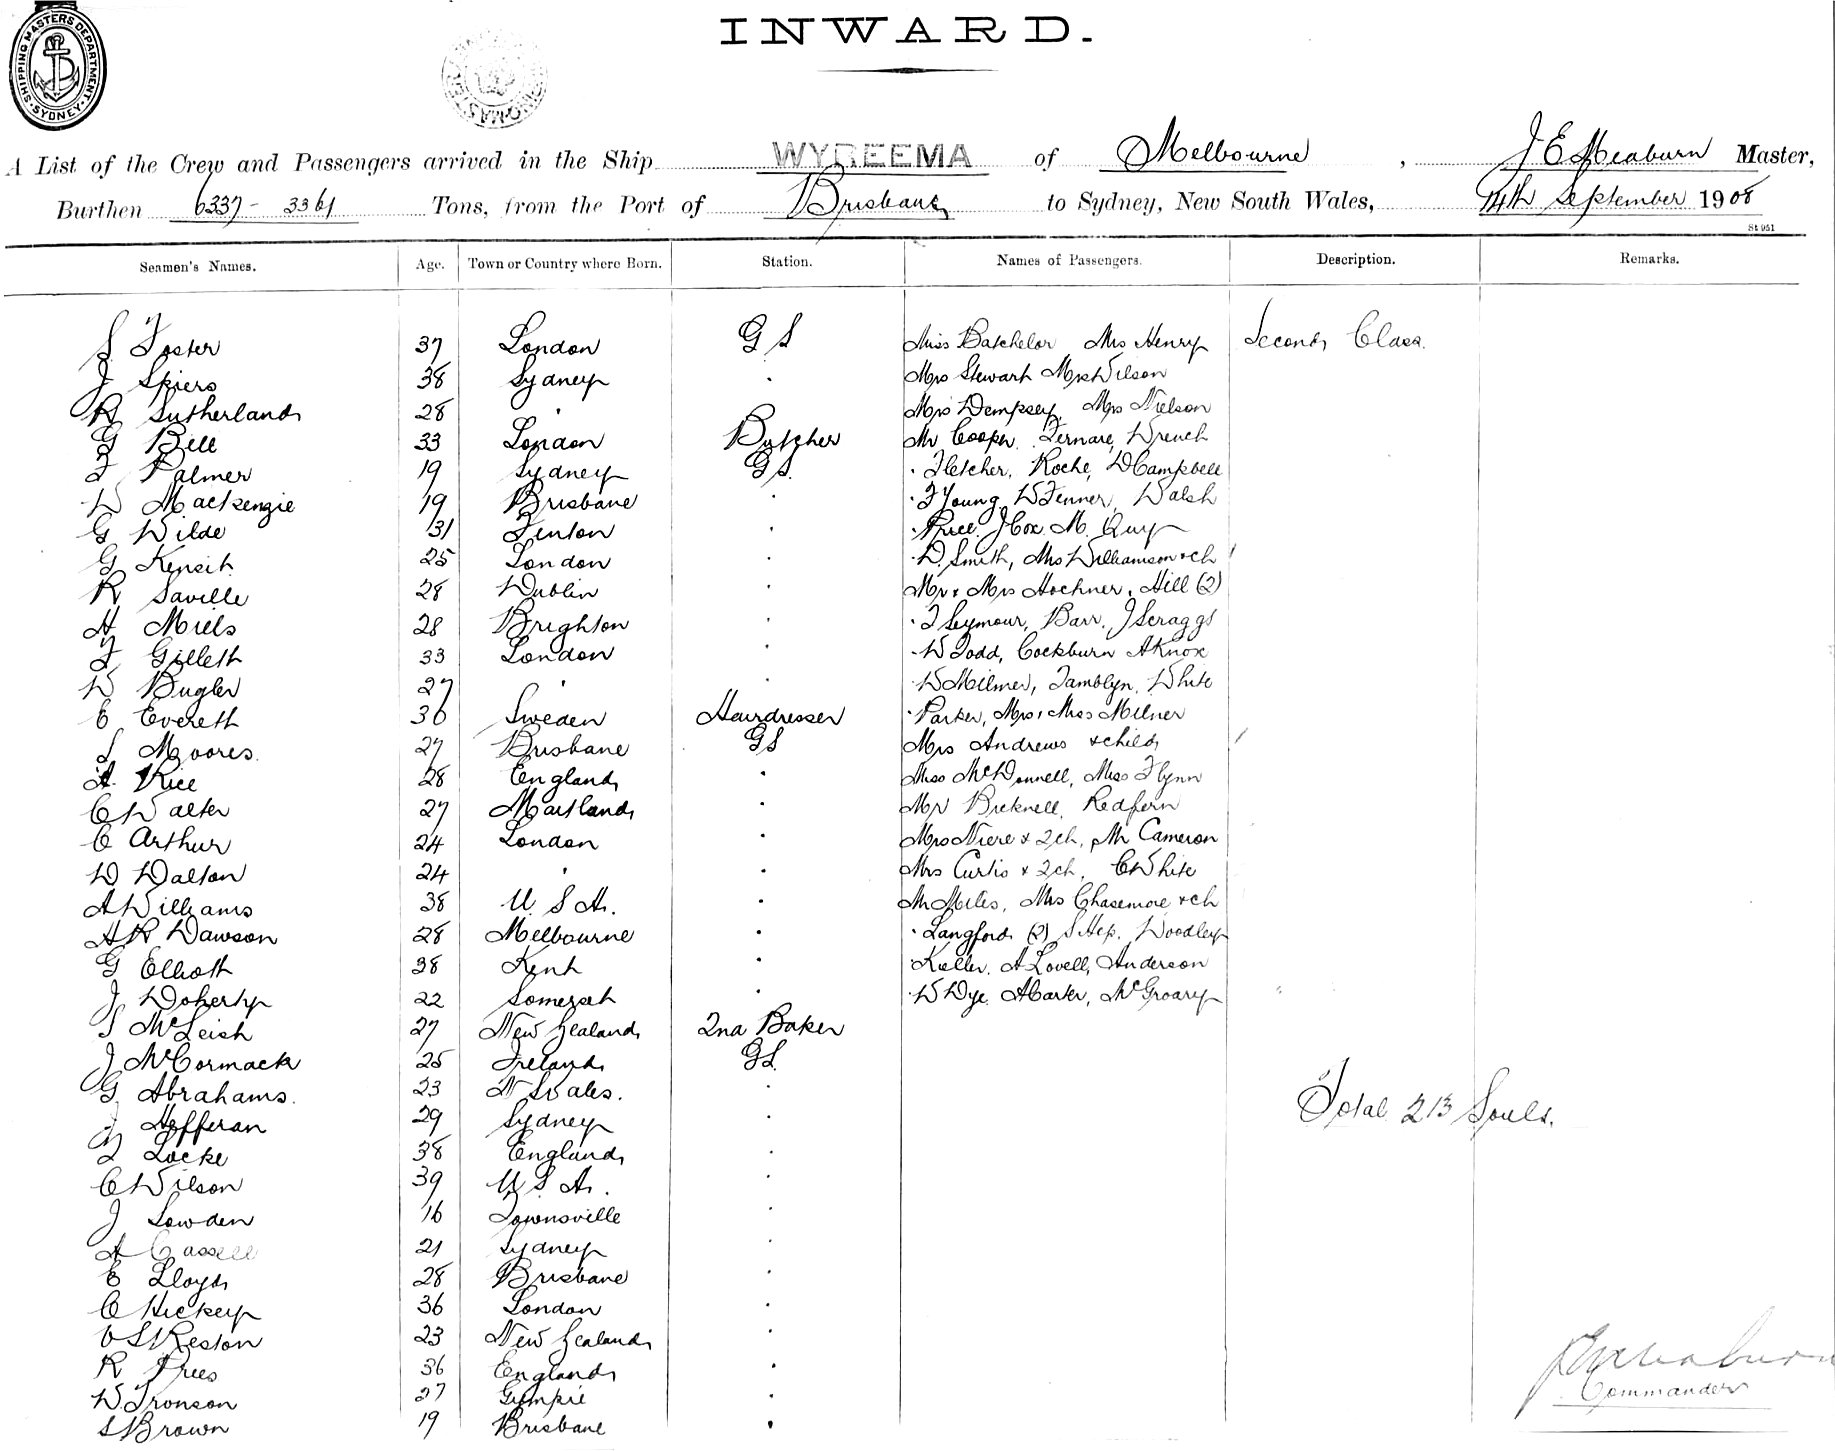 SHIPPING MASTERS DEPARTMENT. SYDNEY.
INWARD.
A List of the Crew and Passengers arrived in the Ship WYREEMA of Melbourne, J E Meaburn Master,
Burthen 6337 - 3361 Tons, from the Port of Brisbane to Sydney, New South Wales, 14th September 1908
St 951
Seamen's Names. Age. Town or Country where Born. Station. Names of Passengers. Description. Remarks.
S Foster 37 London G S Miss Batchelor Mrs Henry Second Class.
J Spiers 38 Sydney . Mrs Stewart Mrs Wilson
R Sutherland 28 " Mrs Dempsey, Mrs Nielson
G Bell 33 London Butcher Mr Cooper, Fernare, Wrench
F Palmer 19 Sydney G S. . Fletcher, Roche, D Campbell
W Mackenzie 19 Brisbane . . F Young, W Fenner, Walsh
G Wilde 31 Linton . . Price, J Cox, M. Quy
G Kensit 25 London . . W. Smith, Mrs Williamson & ch
R Saville 28 Dublin . Mr & Mrs Hochner, Hill (2)
H Miels 28 Brighton . . F Seymour, Barr, J Scraggs
F Gilleth 33 London . . W Todd, Cockburn A Knox
W Bugler 27 " . W Milner, Tamblyn, White
E Evereth 36 Sweden Hairdresser . Parker, Mrs & Miss Milner
S Moores. 27 Brisbane GS Mrs Andrews & child
A. Rice 28 England . Miss McDonnell, Miss Flynn
C Walter 27 Maitland . Mr Bicknell, Redfern
C Arthur 24 London . Mrs Niere & 2 ch, Mr Cameron
W Walton 24 " . Mrs Curtis & 2 ch, C White
A Williams 38 U. S A. . Mr Miles, Mrs Chasemore & ch
A R Dawson 28 Melbourne . . Langford (2) S Hep, Woodley
G Elliott 38 Kent . Keller, A Lovell, Anderson
J Doherty 22 Somerset . W Dye, A Carter, McGroary
S McLeish 27 New Zealand 2nd Baker
J McCormack 25 Ireland GS.
G. Abrahams. 23 N S Wales. .
J Hefferan 29 Sydney . Total 213 Souls.
F Locke 38 England .
C Wilson 39 U S A. .
J Lowden 16 Townsville .
A Cassell 21 Sydney .
E Lloyd 28 Brisbane .
C Hickey 36 London .
O S Keston 23 New Zealand .
R Trees 36 England .
W Tronson 27 Gympie .
S Brown 19 Brisbane .
J E Meaburn
Commander